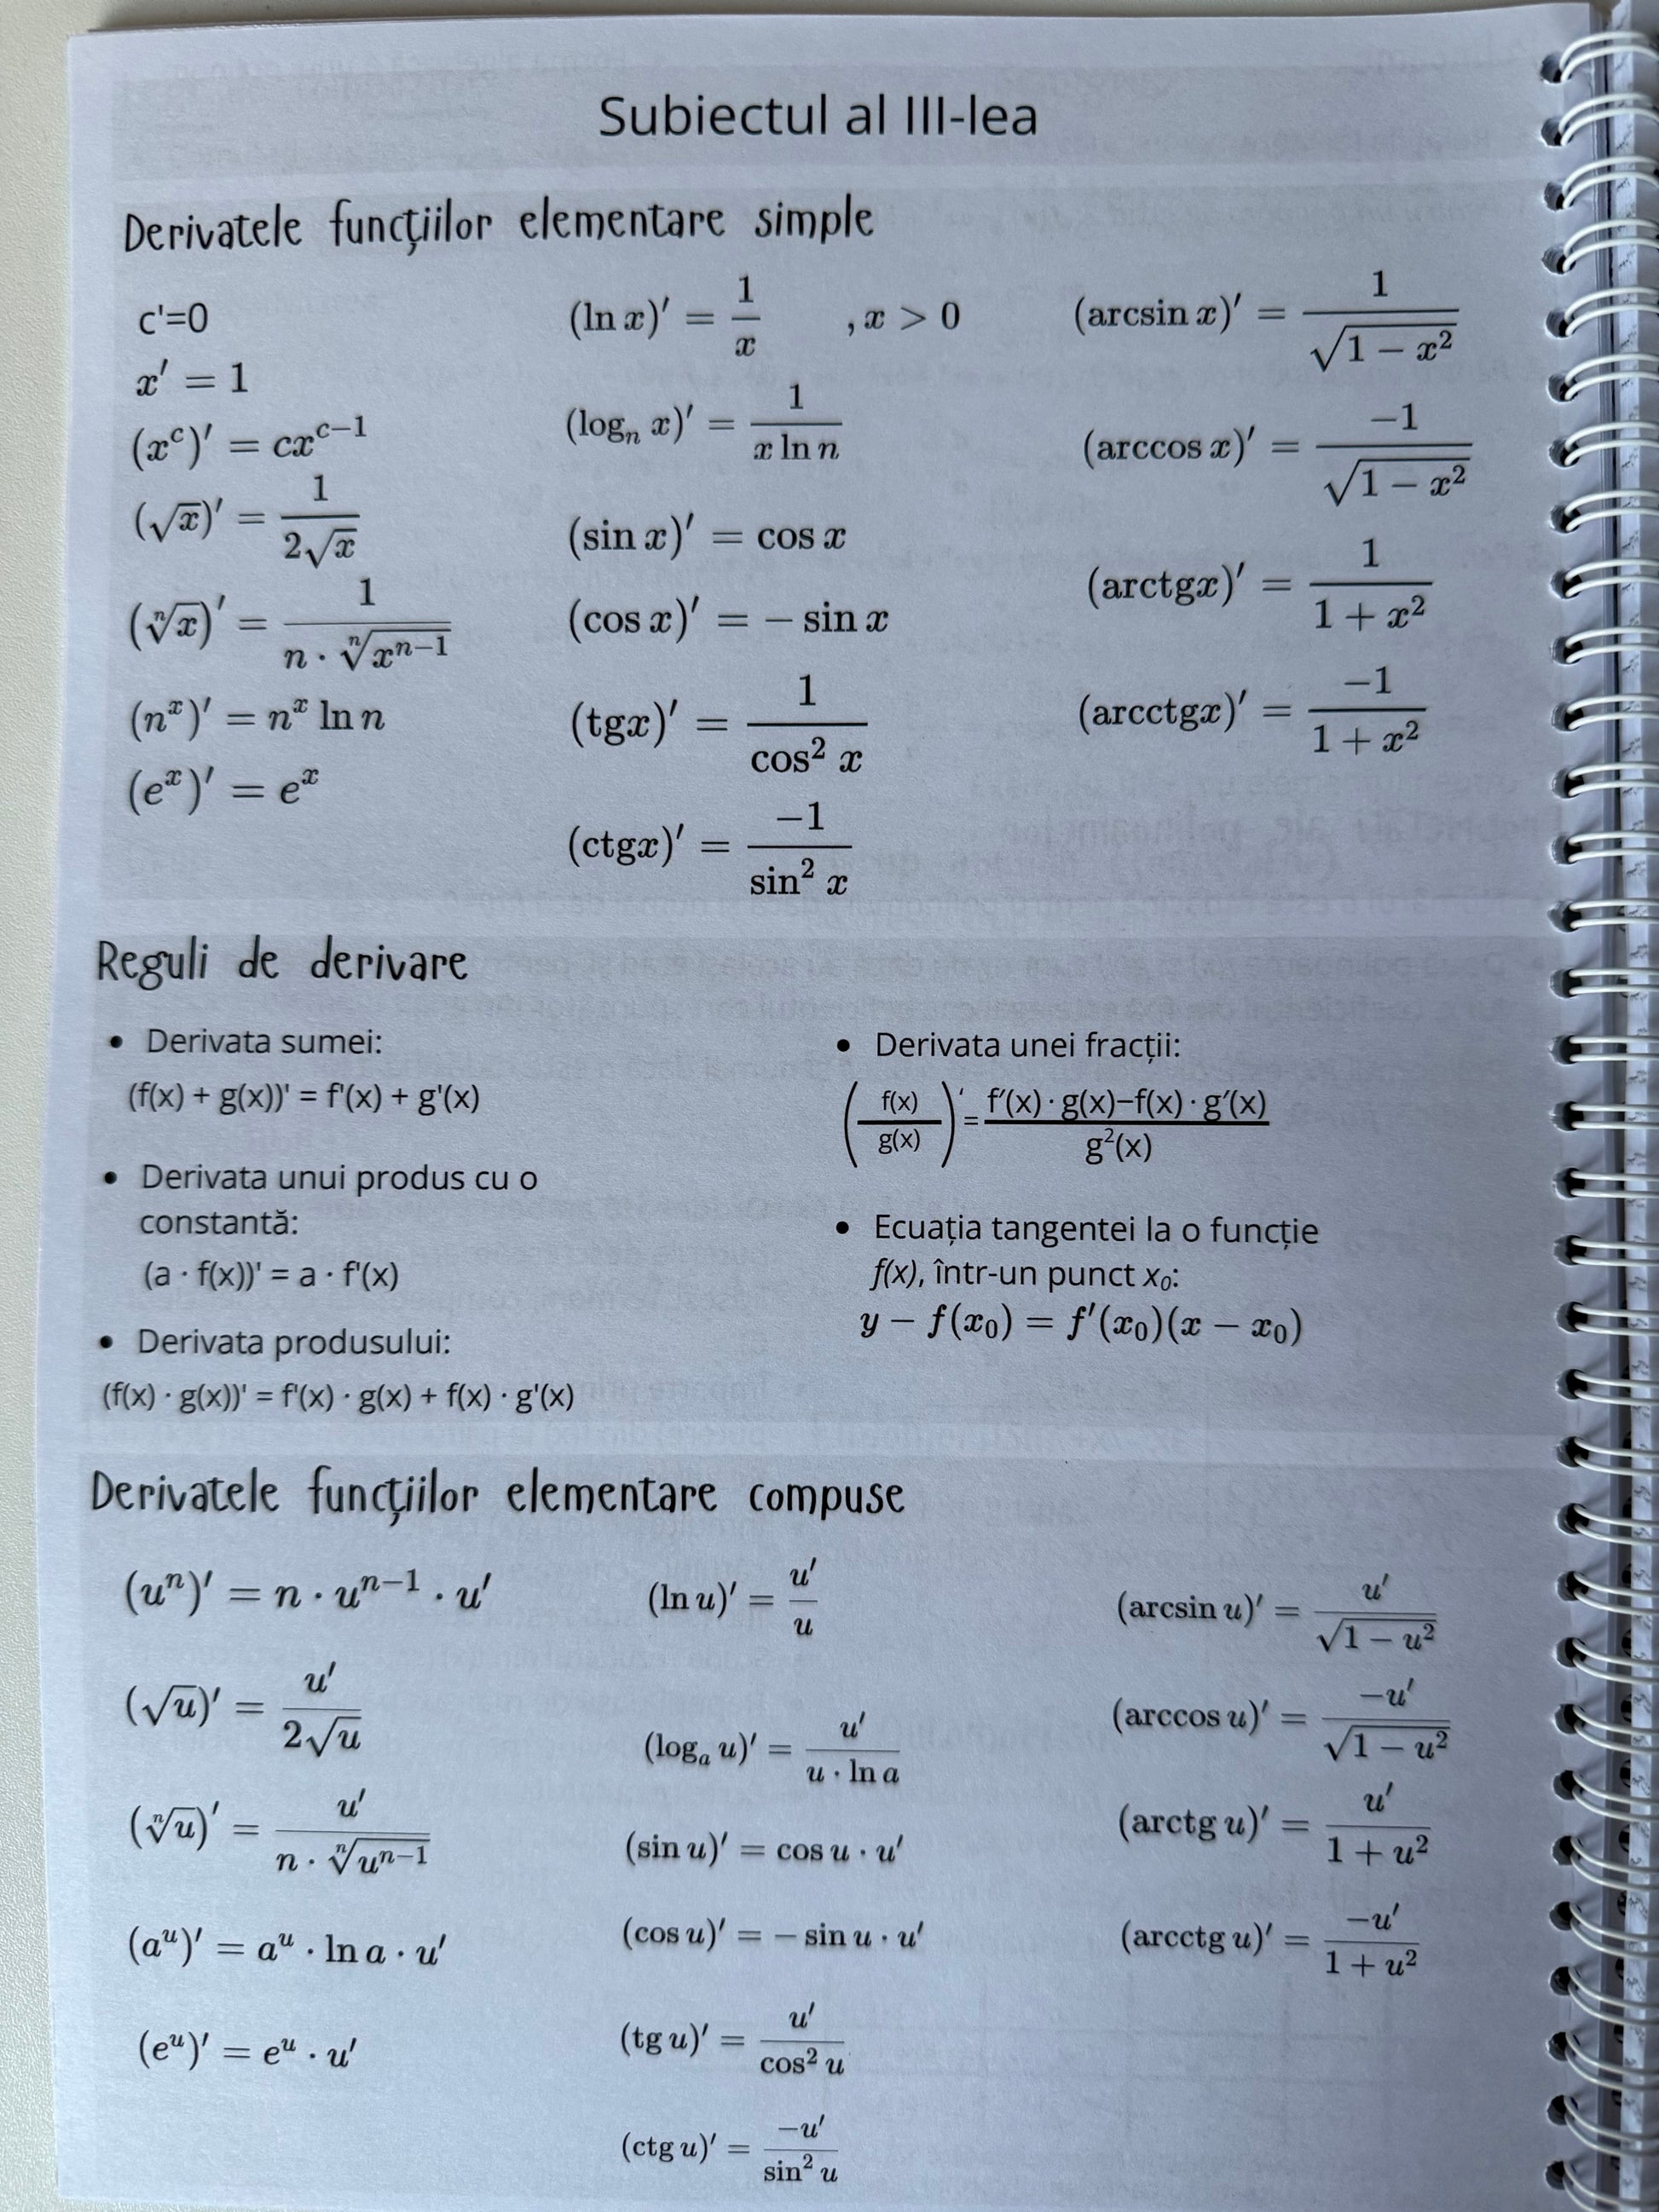 Subiectul al III-lea
Derivatele funcțiilor elementare simple
c'=0
x′ = 1
(x^c)′ = cx^{c−1}
(√x)′ = 1/(2√x)
(ⁿ√x)′ = 1/(n · ⁿ√(x^{n−1}))
(n^x)′ = n^x ln n
(e^x)′ = e^x
(ln x)′ = 1/x , x > 0
(log_n x)′ = 1/(x ln n)
(sin x)′ = cos x
(cos x)′ = − sin x
(tgx)′ = 1/(cos² x)
(ctgx)′ = −1/(sin² x)
(arcsin x)′ = 1/√(1 − x²)
(arccos x)′ = −1/√(1 − x²)
(arctgx)′ = 1/(1 + x²)
(arcctgx)′ = −1/(1 + x²)
Reguli de derivare
• Derivata sumei:
(f(x) + g(x))' = f'(x) + g'(x)
• Derivata unui produs cu o
constantă:
(a · f(x))' = a · f'(x)
• Derivata produsului:
(f(x) · g(x))' = f'(x) · g(x) + f(x) · g'(x)
• Derivata unei fracții:
(f(x)/g(x))′ = (f′(x) · g(x)−f(x) · g′(x))/g²(x)
• Ecuația tangentei la o funcție
f(x), într-un punct x₀:
y − f(x₀) = f′(x₀)(x − x₀)
Derivatele funcțiilor elementare compuse
(u^n)′ = n · u^{n−1} · u′
(√u)′ = u′/(2√u)
(ⁿ√u)′ = u′/(n · ⁿ√(u^{n−1}))
(a^u)′ = a^u · ln a · u′
(e^u)′ = e^u · u′
(ln u)′ = u′/u
(log_a u)′ = u′/(u · ln a)
(sin u)′ = cos u · u′
(cos u)′ = − sin u · u′
(tg u)′ = u′/(cos² u)
(ctg u)′ = −u′/(sin² u)
(arcsin u)′ = u′/√(1 − u²)
(arccos u)′ = −u′/√(1 − u²)
(arctg u)′ = u′/(1 + u²)
(arcctg u)′ = −u′/(1 + u²)